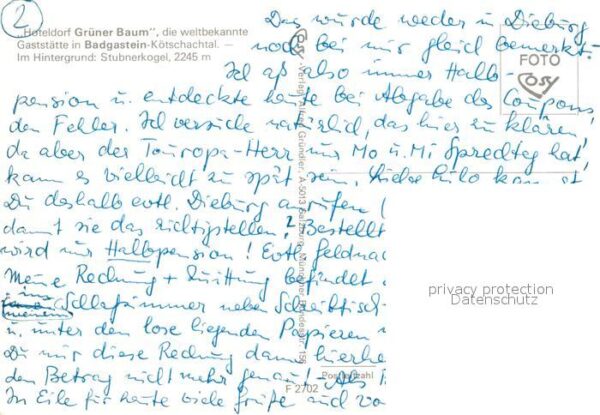 2
„Hoteldorf Grüner Baum", die weltbekannte
Gaststätte in Badgastein-Kötschachtal. —
Im Hintergrund: Stubnerkogel, 2245 m
Das wurde weder in Dieburg
noch bei mir gleich bemerkt.
Ich aß also immer Halb-
pension u. entdeckte heute bei Abgabe des Coupons
den Fehler. Ich versuche natürlich, das hier zu klären,
da aber der Touropa-Herr nur Mo u. Mi Sprechtag hat,
kann es vielleicht zu spät sein. Liebe
Du deshalb evtl. Dieburg anrufen
damit sie das richtigstellen? Bestellt
wird nur Halbpension! Evtl.
Meine Rechnung + Quittung befindet
im
meinem Schlafzimmer neben Schreibtisch
u. unter den lose liegenden Papieren
Du mir diese Rechnung dann
den Betrag nicht mehr genau! – Als
In Eile für heute viele Grüße und
FOTO
Cosy
Cosy
privacy protection
Datenschutz
F 2702